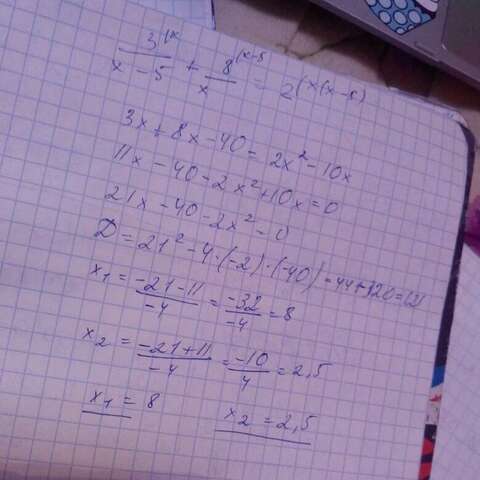 3(x / x - 5 + 8(x-5 / x = 2(x(x-5)
3x + 8x - 40 = 2x² - 10x
11x - 40 - 2x² + 10x = 0
21x - 40 - 2x² = 0
D = 21² - 4 · (-2) · (-40) = 441-320=121
x₁ = -21-11 / -4 = -32 / -4 = 8
x₂ = -21+11 / -4 = -10 / 4 = 2,5
x₁ = 8 x₂ = 2,5